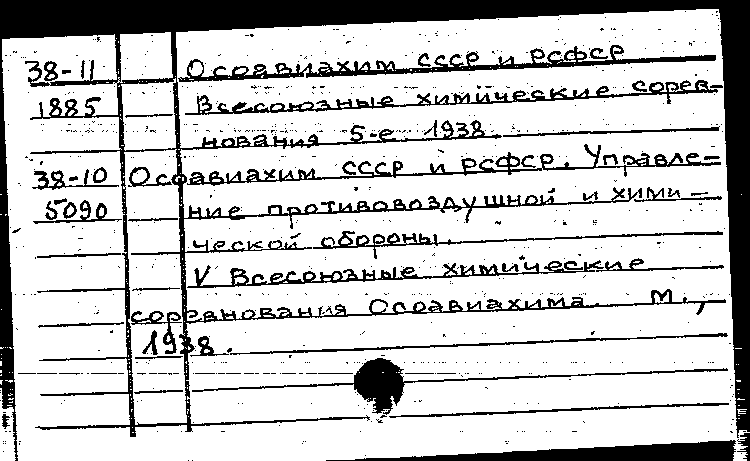 38-11 Осоавиахим СССР и РСФСР
1885 Всесоюзные химические сорев-
нования 5-е 1938.
38-10 Осоавиахим СССР и РСФСР. Управле-
5090 ние противовоздушной и хими-
ческой обороны.
V Всесоюзные химические
соревнования Осоавиахима. М.,
1938.